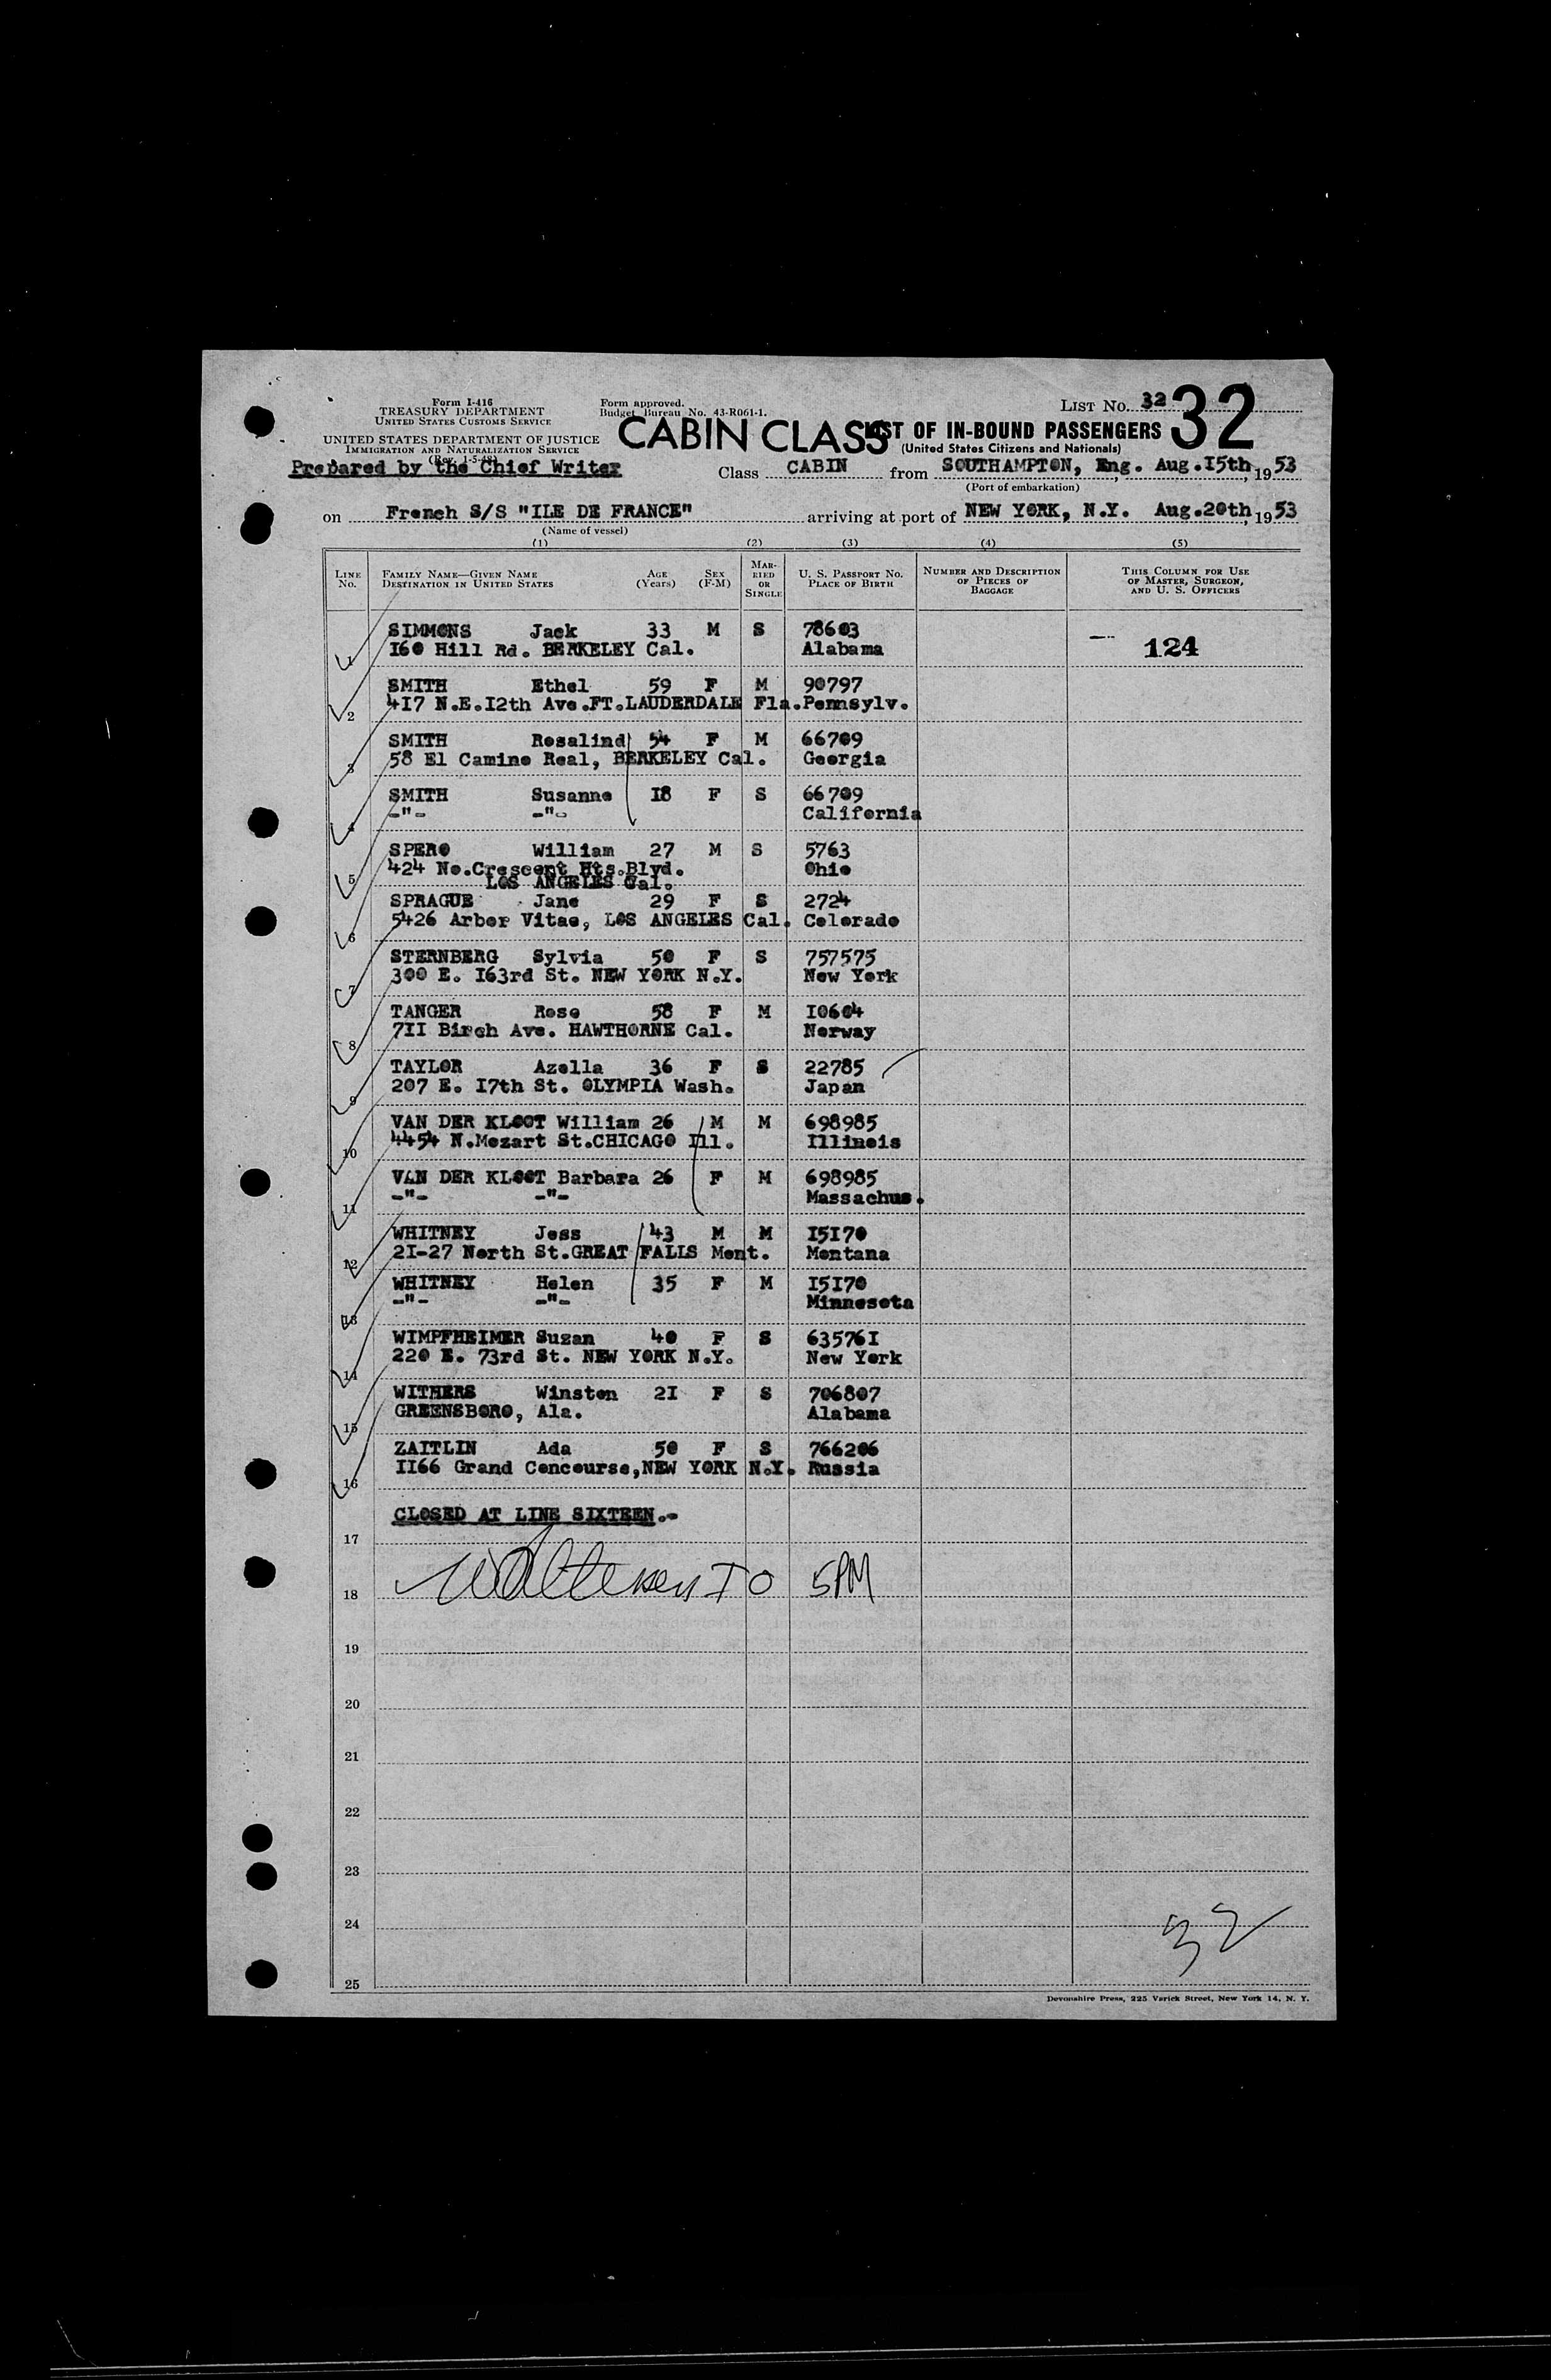 Form I-416
TREASURY DEPARTMENT
UNITED STATES CUSTOMS SERVICE
UNITED STATES DEPARTMENT OF JUSTICE
IMMIGRATION AND NATURALIZATION SERVICE
(Rev. 1-5-48)
Prepared by the Chief Writer
Form approved.
Budget Bureau No. 43-R061-1.
LIST NO. 32
32
CABIN CLASS
LIST OF IN-BOUND PASSENGERS
(United States Citizens and Nationals)
Class CABIN from SOUTHAMPTON, Eng. Aug.I5th, 1953
(Port of embarkation)
on French S/S "ILE DE FRANCE" arriving at port of NEW YORK, N.Y. Aug.20th, 1953
(Name of vessel)
(1) (2) (3) (4) (5)
LINE NO. FAMILY NAME—GIVEN NAME DESTINATION IN UNITED STATES AGE (Years) SEX (F-M) MARRIED OR SINGLE U. S. PASSPORT NO. PLACE OF BIRTH NUMBER AND DESCRIPTION OF PIECES OF BAGGAGE THIS COLUMN FOR USE OF MASTER, SURGEON, AND U. S. OFFICERS
SIMMONS Jack 33 M S 78603
1 I60 Hill Rd. BERKELEY Cal. Alabama 124
SMITH Ethel 59 F M 90797
2 4I7 N.E.I2th Ave.FT.LAUDERDALE Fla. Pennsylv.
SMITH Rosalind 54 F M 66709
3 58 El Camino Real, BERKELEY Cal. Georgia
SMITH Susanne I8 F S 66709
4 -"- -"- California
SPERO William 27 M S 5763
5 424 No.Crescent Hts.Blvd. Ohio
LOS ANGELES Cal.
SPRAGUE Jane 29 F S 2724
6 5426 Arbor Vitae, LOS ANGELES Cal. Colorado
STERNBERG Sylvia 50 F S 757575
7 300 E. I63rd St. NEW YORK N.Y. New York
TANGER Rose 58 F M I0604
8 7II Birch Ave. HAWTHORNE Cal. Norway
TAYLOR Azella 36 F S 22785
9 207 E. I7th St. OLYMPIA Wash. Japan
VAN DER KLOOT William 26 M M 698985
10 4454 N.Mozart St.CHICAGO Ill. Illinois
VAN DER KLOOT Barbara 26 F M 698985
11 -"- -"- Massachus.
WHITNEY Jess 43 M M I5I70
12 2I-27 North St.GREAT FALLS Mont. Montana
WHITNEY Helen 35 F M I5I70
13 -"- -"- Minnesota
WIMPFHEIMER Suzan 40 F S 63576I
14 220 E. 73rd St. NEW YORK N.Y. New York
WITHERS Winston 2I F S 706807
15 GREENSBORO, Ala. Alabama
ZAITLIN Ada 50 F S 766206
16 II66 Grand Concourse,NEW YORK N.Y. Russia
CLOSED AT LINE SIXTEEN.-
17
18 5PM
19
20
21
22
23
24
32
25
Devonshire Press, 225 Varick Street, New York 14, N. Y.